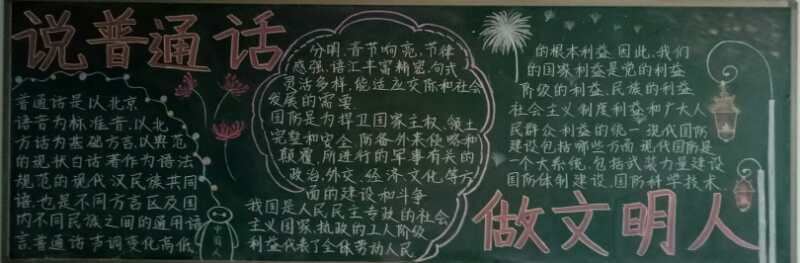 说普通话
普通话是以北京
语音为标准音,以北
方话为基础方言,以典范
的现状白话著作为语法
规范的现代汉民族共同
语,也是不同方言区及国
内不同民族之间的通用语
言普通话声调变化高低
中国人
分明,音节响亮,节律
感强,语汇丰富精密,句式
灵活多样,能适应交际和社会
发展的需要
国防是为捍卫国家主权、领土
完整和安全,防备外来侵略和
颠覆,所进行的军事有关的
政治、外交、经济、文化等方
面的建设和斗争
我国是人民民主专政的社会
主义国家,执政的工人阶级
利益代表了全体劳动人民
的根本利益,因此,我们
的国家利益是党的利益
阶级的利益、民族的利益
社会主义制度利益和广大人
民群众利益的统一现代国防
建设包括哪些方面现代国防是
一个大系统,包括武装力量建设
国防体制建设、国防科学技术
做文明人